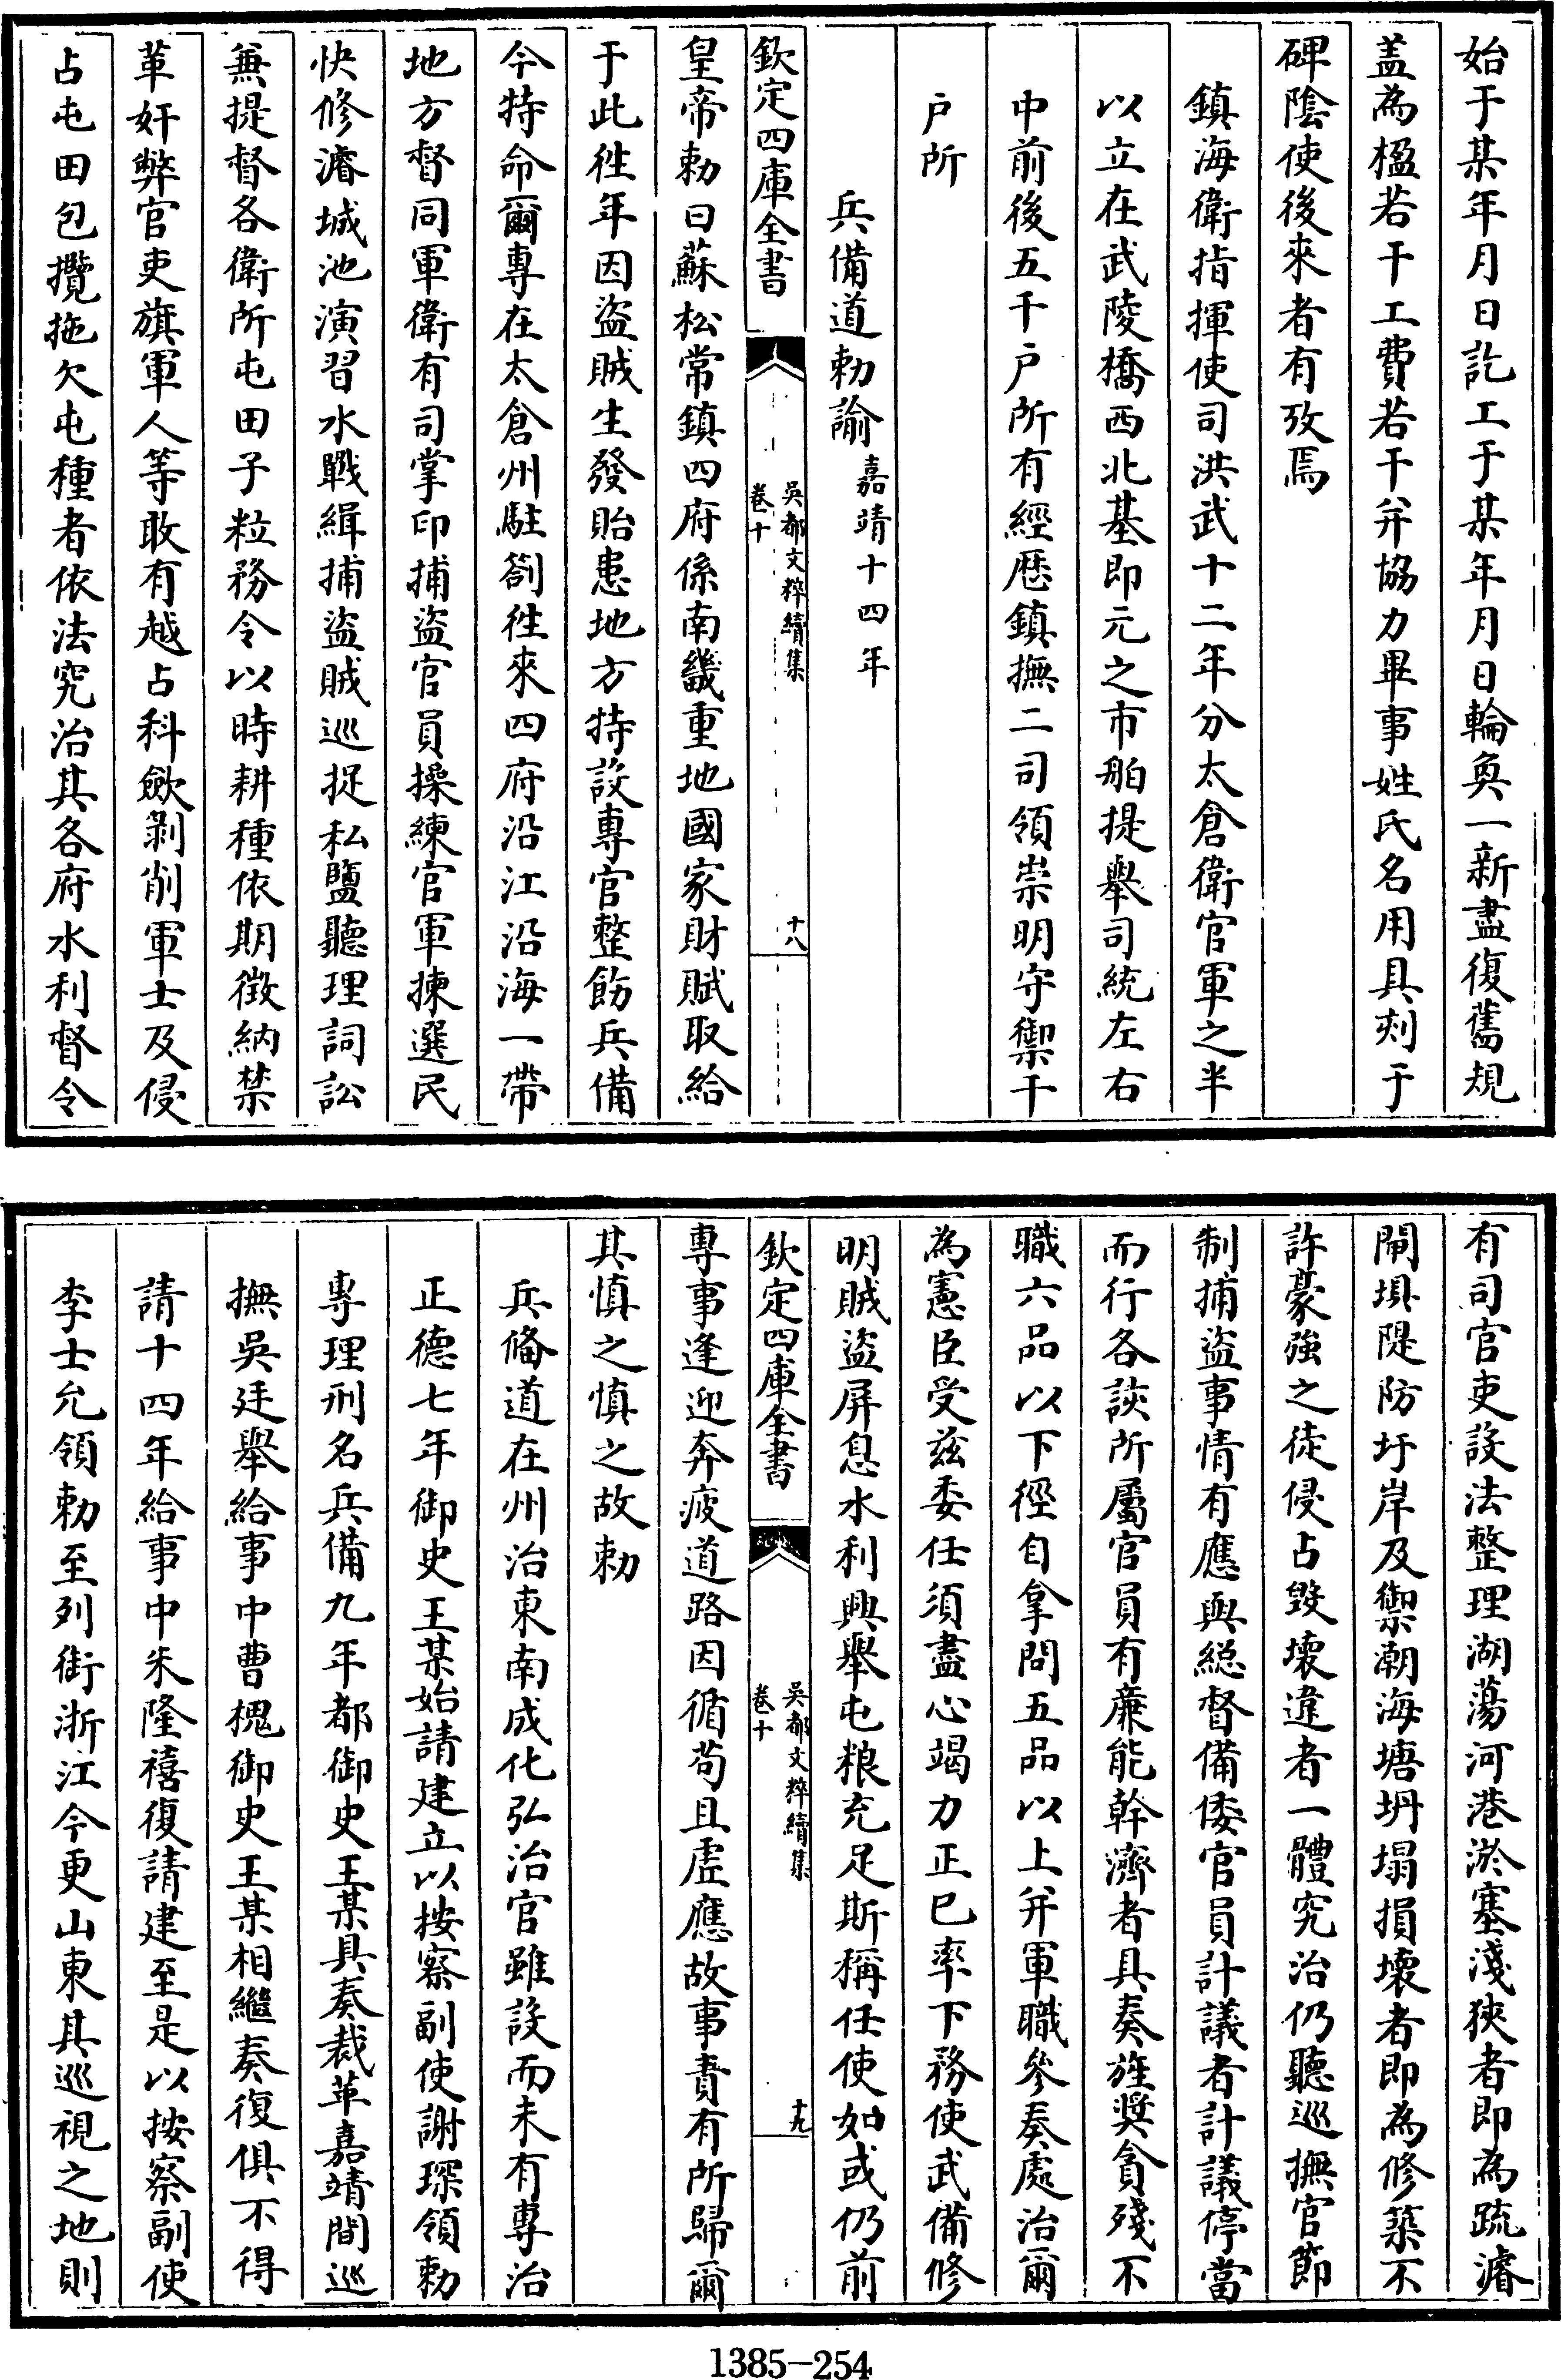 始于某年月日訖工于某年月日輪奐一新盡復舊規
盖為楹若干工費若干并協力畢事姓氏名用具刻于
碑陰使後來者有攷焉
鎮海衛指揮使司洪武十二年分太倉衛官軍之半
以立在武陵橋西北基即元之市舶提舉司統左右
中前後五千戶所有經歷鎮撫二司領崇明守禦千
戶所
兵備道勅諭嘉靖十四年
欽定四庫全書
吳都文粹續集
卷十
十八
皇帝勅曰蘇松常鎮四府係南畿重地國家財賦取給
于此徃年因盜賊生發貽患地方特設專官整飭兵備
今特命爾專在太倉州駐劄徃來四府沿江沿海一帶
地方督同軍衛有司掌印捕盜官員操練官軍揀選民
快修濬城池演習水戰緝捕盜賊巡捉私鹽聽理詞訟
兼提督各衛所屯田子粒務令以時耕種依期徵納禁
革奸弊官吏旗軍人等敢有越占科歛剝削軍士及侵
占屯田包攬拖欠屯種者依法究治其各府水利督令
有司官吏設法整理湖蕩河港淤塞淺狹者即為疏濬
閘垻隄防圩岸及禦潮海塘坍塌損壞者即為修築不
許豪強之徒侵占毀壞違者一體究治仍聽巡撫官節
制捕盜事情有應與総督備倭官員計議者計議停當
而行各該所屬官員有廉能幹濟者具奏旌獎貪殘不
職六品以下徑自拿問五品以上并軍職參奏處治爾
為憲臣受茲委任須盡心竭力正已率下務使武備修
明賊盜屏息水利興舉屯粮充足斯稱任使如或仍前
欽定四庫全書
吳都文粹續集
卷十
十九
專事逢迎奔疲道路因循苟且虛應故事責有所歸爾
其慎之慎之故勅
兵備道在州治東南成化弘治官雖設而未有專治
正德七年御史王某始請建立以按察副使謝琛領勅
專理刑名兵備九年都御史王某具奏裁革嘉靖間巡
撫吳廷舉給事中曹槐御史王某相繼奏復俱不得
請十四年給事中朱隆禧復請建至是以按察副使
李士允領勅至列銜浙江今更山東其巡視之地則
1385—254